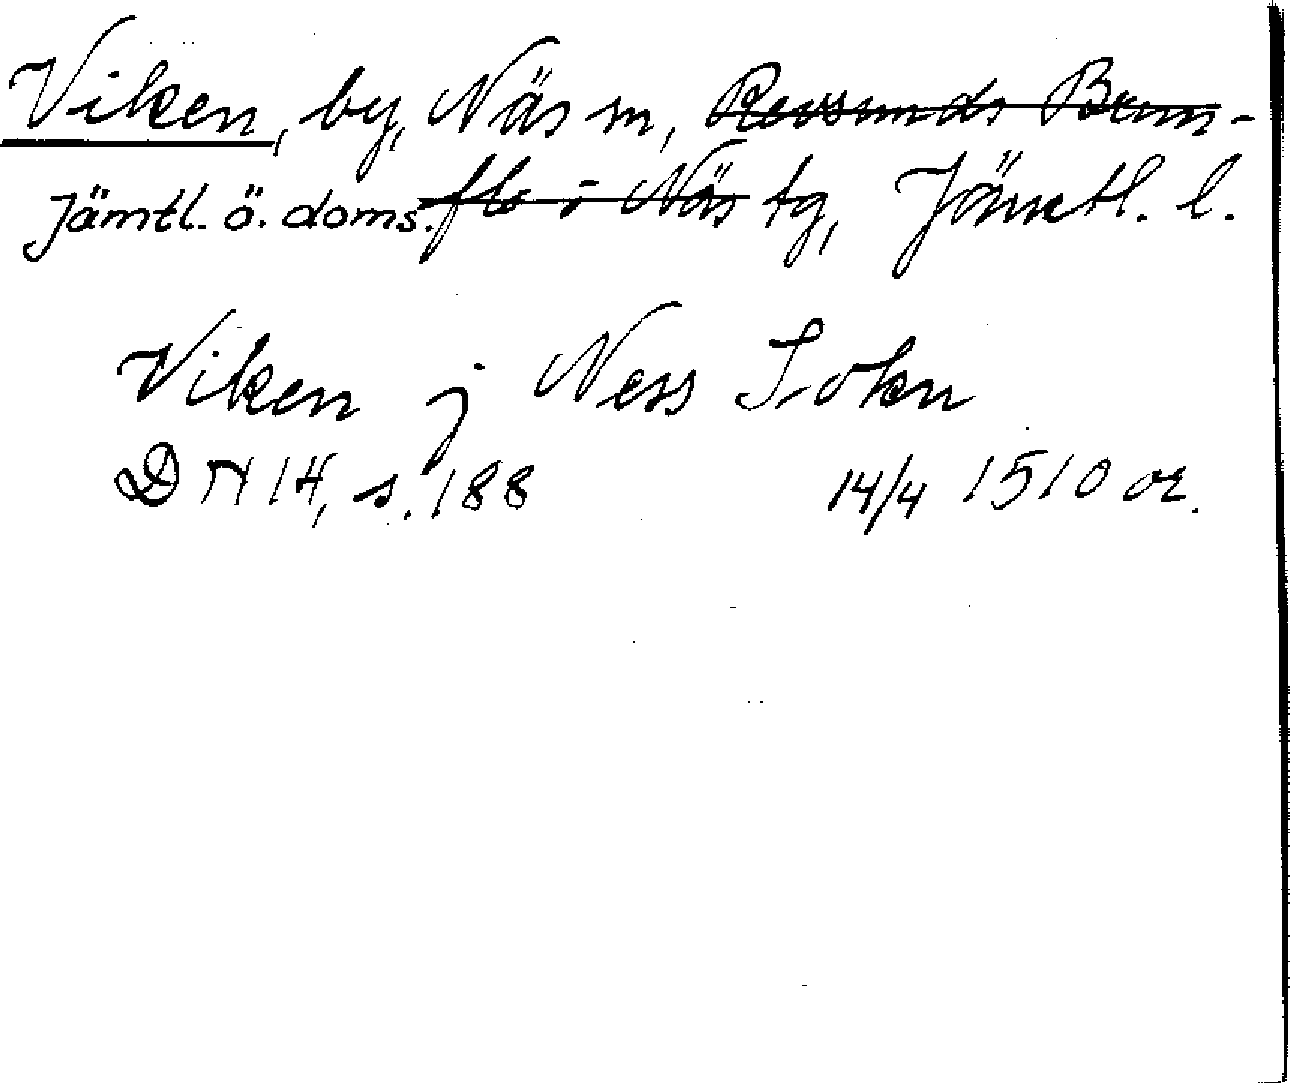 Viken, by, Näs sn, Revsunds Brun-
Jämtl. ö. doms. flo o Näs tg, Jämtl. l.
Viken j Ness Sokn
DN 14, s. 188 14/4 1510 or.